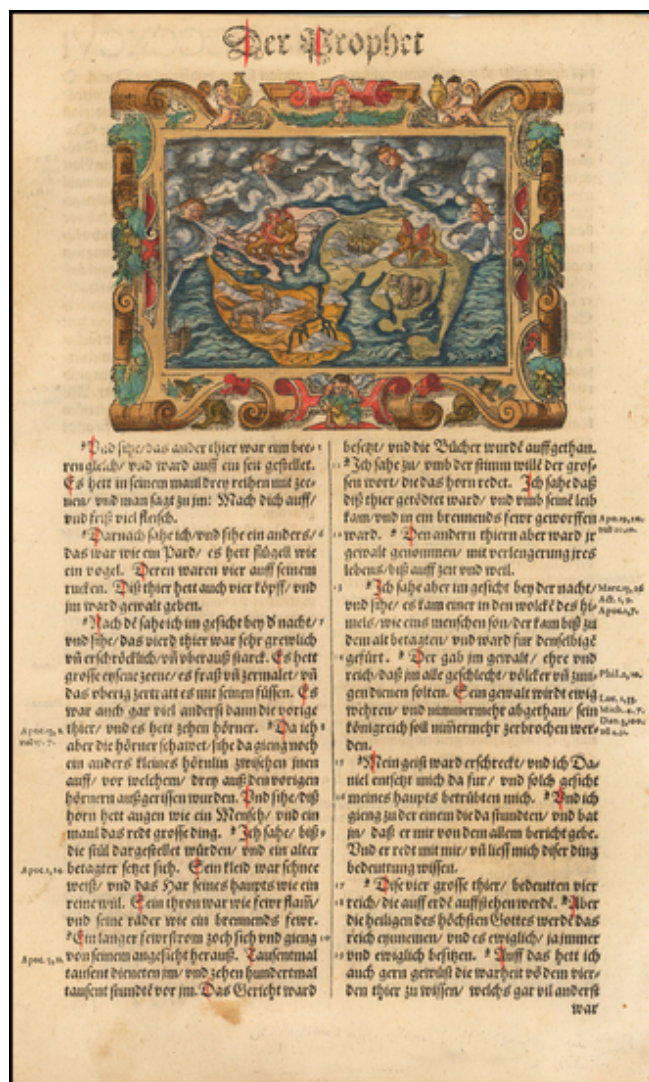 Der Prophet
Vnd sihe/das ander thier war eim bee-
ren gleich/ vnd ward auff ein seit gestellet.
Es hett in seinem maul drey reihen mit zee-
nen/ vnd man sagt zu jm: Mach dich auff/
vnd friß viel fleisch.
Darnach sahe ich/vnd sihe ein anders/ 6
das war wie ein Pard/ es hett flügell wie
ein vogel. Deren waren vier auff seinem
rucken. Diß thier hett auch vier köpff/ vnd
jm ward gewalt geben.
Nach dē sahe ich im gesicht bey d nacht/ 7
vnd sihe/das vierd thier war sehr grewlich
vñ erschröcklich/ vñ überauß starck. Es hett
grosse eysene zeene/ es fraß vñ zermalet/ vñ
das vberig zertratt es mit seinen füssen. Es
war auch gar viel anderst dann die vorige
thier/ vnd es hett zehen hörner. Da ich
aber die hörner schawet/sihe da gieng noch
ein anders kleines hörnlin zwischen jnen
auff/ vor welchem/ drey auß den vorigen
hörnern außgerissen wurden. Vnd sihe/diß
horn hett augen wie ein Mensch/ vnd ein
maul das redt grosse ding. Ich sahe/ biß
die stül dargestellet würden/ vnd ein alter
betagter setzet sich. Sein kleid war schnee
weiß/ vnd das Har seines haupts wie ein
reine wül. Sein thron war wie fewr flam/
vnd seine räder wie ein brennends fewr.
Ein langer fewrstrom zoch sich vnd gieng 10
von seinem angesicht herauß. Tausentmal
tausent dieneten jm/ vnd zehen hundertmal
tausent stundtē vor jm. Das Gericht ward
Apoc. 1, 14.
besetzt/ vnd die Bücher wurdē auffgethan.
11 Ich sahe zu/ vmb der stimm willē der gros-
sen wort/ die das horn redet. Ich sahe daß
diß thier getödtet ward/ vnd vmb seinē leib
kam/vnd in ein brennends fewr geworffen
12 ward. Den andern thiern aber ward jr
gewalt genommen/ mit verlengerung jres
lebens/ biß auff zeit vnd weil.
13 Ich sahe aber im gesicht bey der nacht/
vnd sihe/ es kam einer in den wolckē des hi-
mels/ wie eins menschen son/der kam biß zu
dem alt betagten/ vnd ward fur denselbigē
14 gefürt. Der gab jm gewalt/ ehre vnd
reich/ daß jm alle geschlecht/ völcker vñ zun-
gen dienen solten. Sein gewalt wirdt ewig
wehren/ vnd nimmermehr abgethan/ sein
königreich soll nim̄ermehr zerbrochen wer-
den.
15 Mein geist ward erschreckt/ vnd ich Da-
niel entsetzt mich da fur/ vnd solch gesicht
16 meines haupts betrübten mich. Vnd ich
gieng zu der einem die da stunden/ vnd bat
jn/ daß er mir von dem allem bericht gebe.
Vnd er redt mit mir/ vñ liess mich diser ding
bedeuttung wissen.
17 Dise vier grosse thier/ bedeutten vier
18 reich/ die auff erdē auffstehen werdē. Aber
die heiligen des höchsten Gottes werdē das
reich eynnemen/ vnd es ewiglich/ ja jmmer
19 vnd ewiglich besitzen. Auff das hett ich
auch gern gewüst die warheit vō dem vier-
den thier zu wissen/ welchs gar vil anderst
war
Marc. 13, 26
Act. 1, 9.
Apoc. 1, 7.
Phil. 2, 10.
Luc. 1, 33.
Mich. 4, 7.